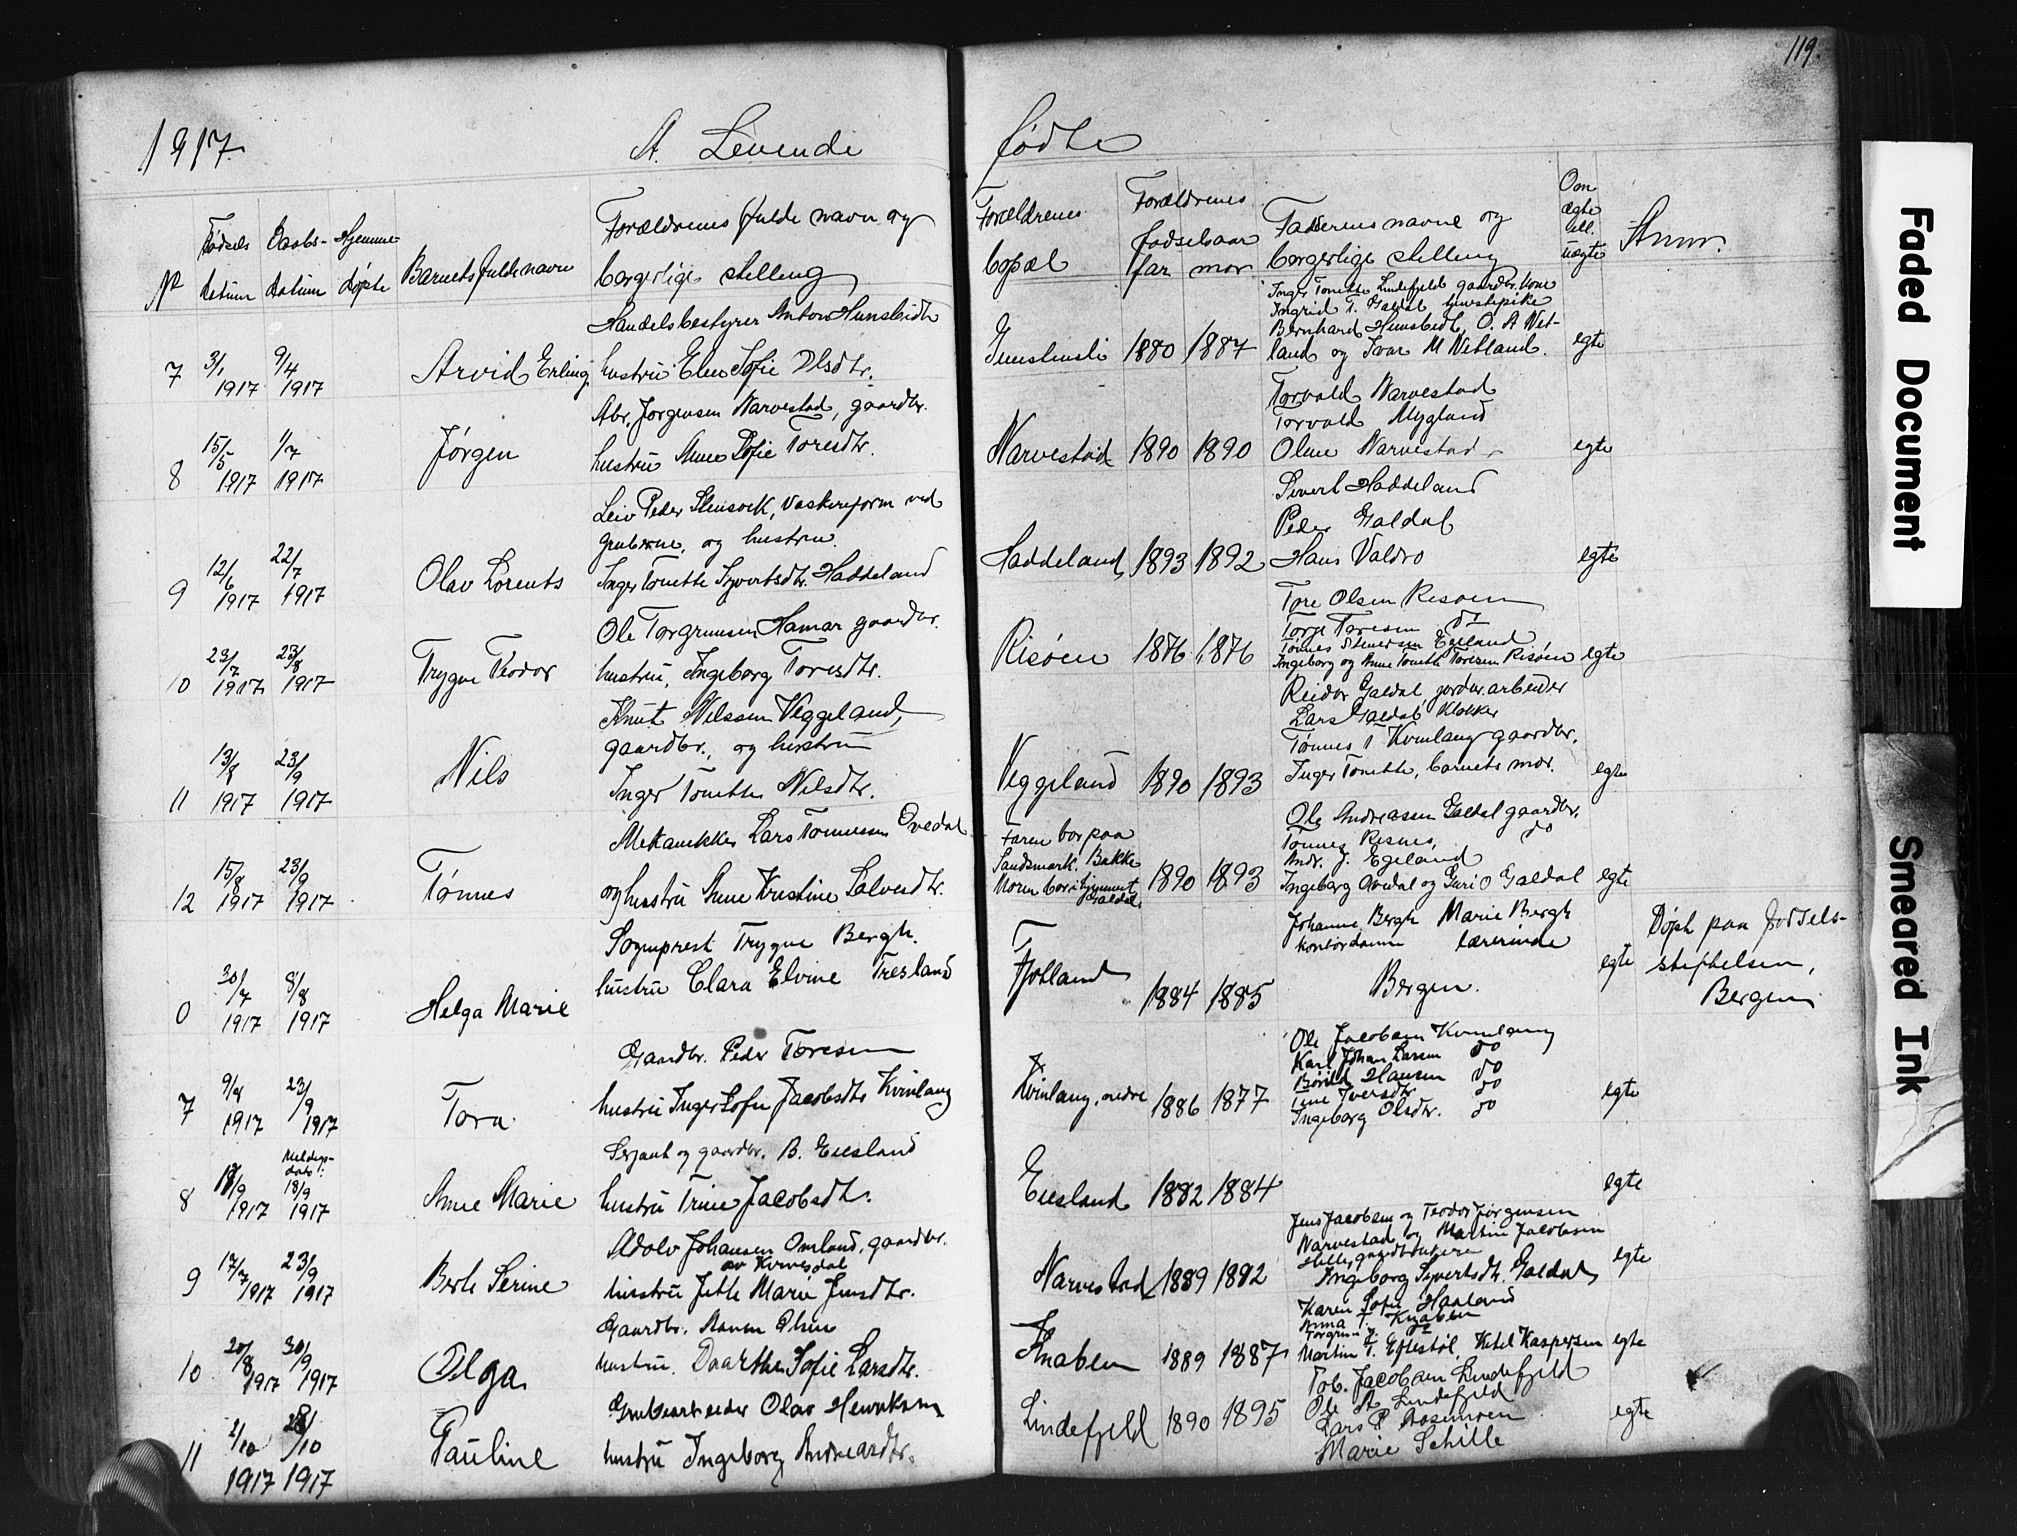 119.
1917.
A. Levende fødte
No
Fødsels datum
Daabs- datum
Hjemme døpte
Barnets fulde navn
Forældrenes fulde navn og borgerlige stilling
Forældrenes bopæl
Forældrenes fødselsaar
far mor
Faddernes navne og borgerlige stilling
Om egte ell. uegte
Anm.
7 3/1 1917 9/4 1917
Arvid Erling
Handelsbestyrer Anton Hunsbedt
hustru Elen Sofie Olsdtr.
1880 1887
Inger Tonette Lindefjeld gaardbr. kone
Ingrid T. Galdal tjenstepike
Bernhard Hunsbedt, O. A Net-
land og Ivar M Netland.
egte
8 15/5 1917 1/7 1917
Jørgen
Abr. Jørgensen Narvestad, gaardbr.
hustru Anne Sofie Toresdtr.
Narvestad 1890 1890
Torvald Narvestad
Torvald Mygland
Oline Narvestad
egte
9 12/6 1917 22/7 1917
Olav Lorents
Leiv Peder Stensvik, Vaskereform ved
gruberne, og hustru
Inger Tonette Syvertsdtr. Haddeland
Haddeland 1893 1892
Sivert Haddeland
Peder Galdal
Hans Valdro
egte
10 23/7 1917 23/8 1917
Trygve Teodor
Ole Torgrimsen Hamar gaardbr.
hustru, Ingeborg Toresdtr.
Risøen 1876 1876
Tore Olsen Risøen
Torje Toresen do
Tønnes Egeland
Ingeborg og Anne Tonette Toresen Risøen
egte
11 13/8 1917 23/9 1917
Nils
Knut Nilssen Veggeland,
gaardbr., og hustru
Inger Tonette Nilsdtr.
Veggeland 1890 1893
Reidar Galdal, jordbr. arbeider
Lars Galdal Klokker
Tønnes T Kvinlaug gaardbr.
Inger Tonette, barnets mor.
egte
12 15/8 1917 23/9 1917
Tønnes
Mekanikker Lars Tønnessen Ovedal
og hustru Anne Kristine Salvesdtr.
Faren bor paa
Sandsmark. Bakke
Moren bor i hjemmet
Galdal.
1890 1893
Ole Andreassen Galdal gaardbr.
Tønnes Risnes, do
Andr. J. Egeland
Ingeborg Ovedal og Guri O Galdal
egte
0 30/7 1917 8/8 1917
Helga Marie
Sogneprest Trygve Bergh.
hustru Clara Elvine Tresland
Fjotland
1884 1885
Johanne Bergh Marie Bergh
kontordame lærerinde
Bergen.
egte
Døpt paa fødsels-
stiftelsen,
Bergen
7 9/8 1917 23/9 1917
Tora
Gaardbr. Peder Toresen
hustru Inger Sofie Jacobsdtr Kvinlaug
Kvinlaug, nedre 1886 1877
Ole Jacobsen Kvinlaug
Karl Johan Larsen do
Børild Hansen do
Tine Iversdtr do
Ingeborg Olsdtr. do
egte
8 18/9 1917
Meldings-
dato:
18/9 1917
Anne Marie
Serjant og gaardbr. B. Eiesland
hustru Trine Jacobsdtr.
Eiesland 1882 1884
egte
9 17/7 1917 23/9 1917
Berte Serine
Adolv Johansen Omland, gaardbr.
av Kvinesdal
hustru Jette Marie Jensdtr.
Narvestad 1889 1892
Jens Jacobsen og Teodor Jørgensen
Narvestad og Martin Jacobsen
Helle, gaardbrukere
Ingeborg Syvertsdtr. Galdal
egte
10 20/8 1917 30/9 1917
Olga
Gaardbr. Olsen
hustru. Doorthea Sofie Larsdtr.
Knaben 1889 1887
Karen Sofie Haaland
Anna T. Knaben
Torgrim J. do
Martin T. Eftestøl, Ketel Kaspersen
egte
11 2/10 1917 28/10 1917
Pauline
Grubearbeider Olav Henriksen
hustru Ingeborg Andreasdtr.
Lindefjeld 1890 1895
Tob. Jacobsen Lindefjeld
Ole A. Lindefjeld
Lars P. Aasemoen
Marie Schille
egte
Faded Document
Smeared Ink